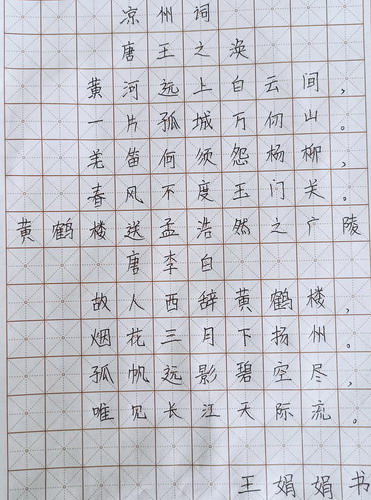 凉州词
唐王之涣
黄河远上白云间，
一片孤城万仞山。
羌笛何须怨杨柳，
春风不度玉门关。
黄鹤楼送孟浩然之广陵
唐李白
故人西辞黄鹤楼，
烟花三月下扬州。
孤帆远影碧空尽，
唯见长江天际流。
王娟娟书